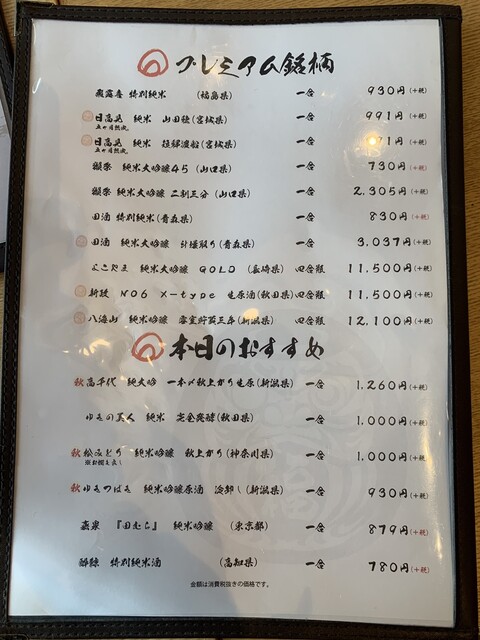 プレミアム銘柄
飛露喜 特別純米 (福島県) 一合 930円(+税)
日高見 純米 山田穂(宮城県) 一合 991円(+税)
日高見 純米 短稈渡船(宮城県) 一合 91円(+税)
純米大吟醸45(山口県) 一合 730円(+税)
純米大吟醸 二割三分(山口県) 一合 2.305円(+税)
田酒 特別純米(青森県) 一合 830円(+税)
田酒 純米大吟醸 斗壜取り(青森県) 一合 3.037円(+税)
よこやま 純米大吟醸 GOLD (長崎県) 四合瓶 11.500円(+税)
新政 NO6 X-type 生原酒(秋田県) 四合瓶 11.500円(+税)
八海山 純米吟醸 雪室貯蔵三年(新潟県) 四合瓶 12.100円(+税)
本日のおすすめ
秋 高千代 純大吟 一本〆秋上がり生原(新潟県) 一合 1.260円(+税)
ゆきの美人 純米 完全発酵(秋田県) 一合 1.000円(+税)
秋 松みどり 純米吟醸 秋上がり(神奈川県) 一合 1.000円(+税)
秋 ゆきつばき 純米吟醸原酒 (新潟県) 一合 930円(+税)
嘉泉 『田むら』 純米吟醸 (東京都) 一合 879円(+税)
酔鯨 特別純米酒 (高知県) 一合 780円(+税)
金額は消費税抜きの価格です。